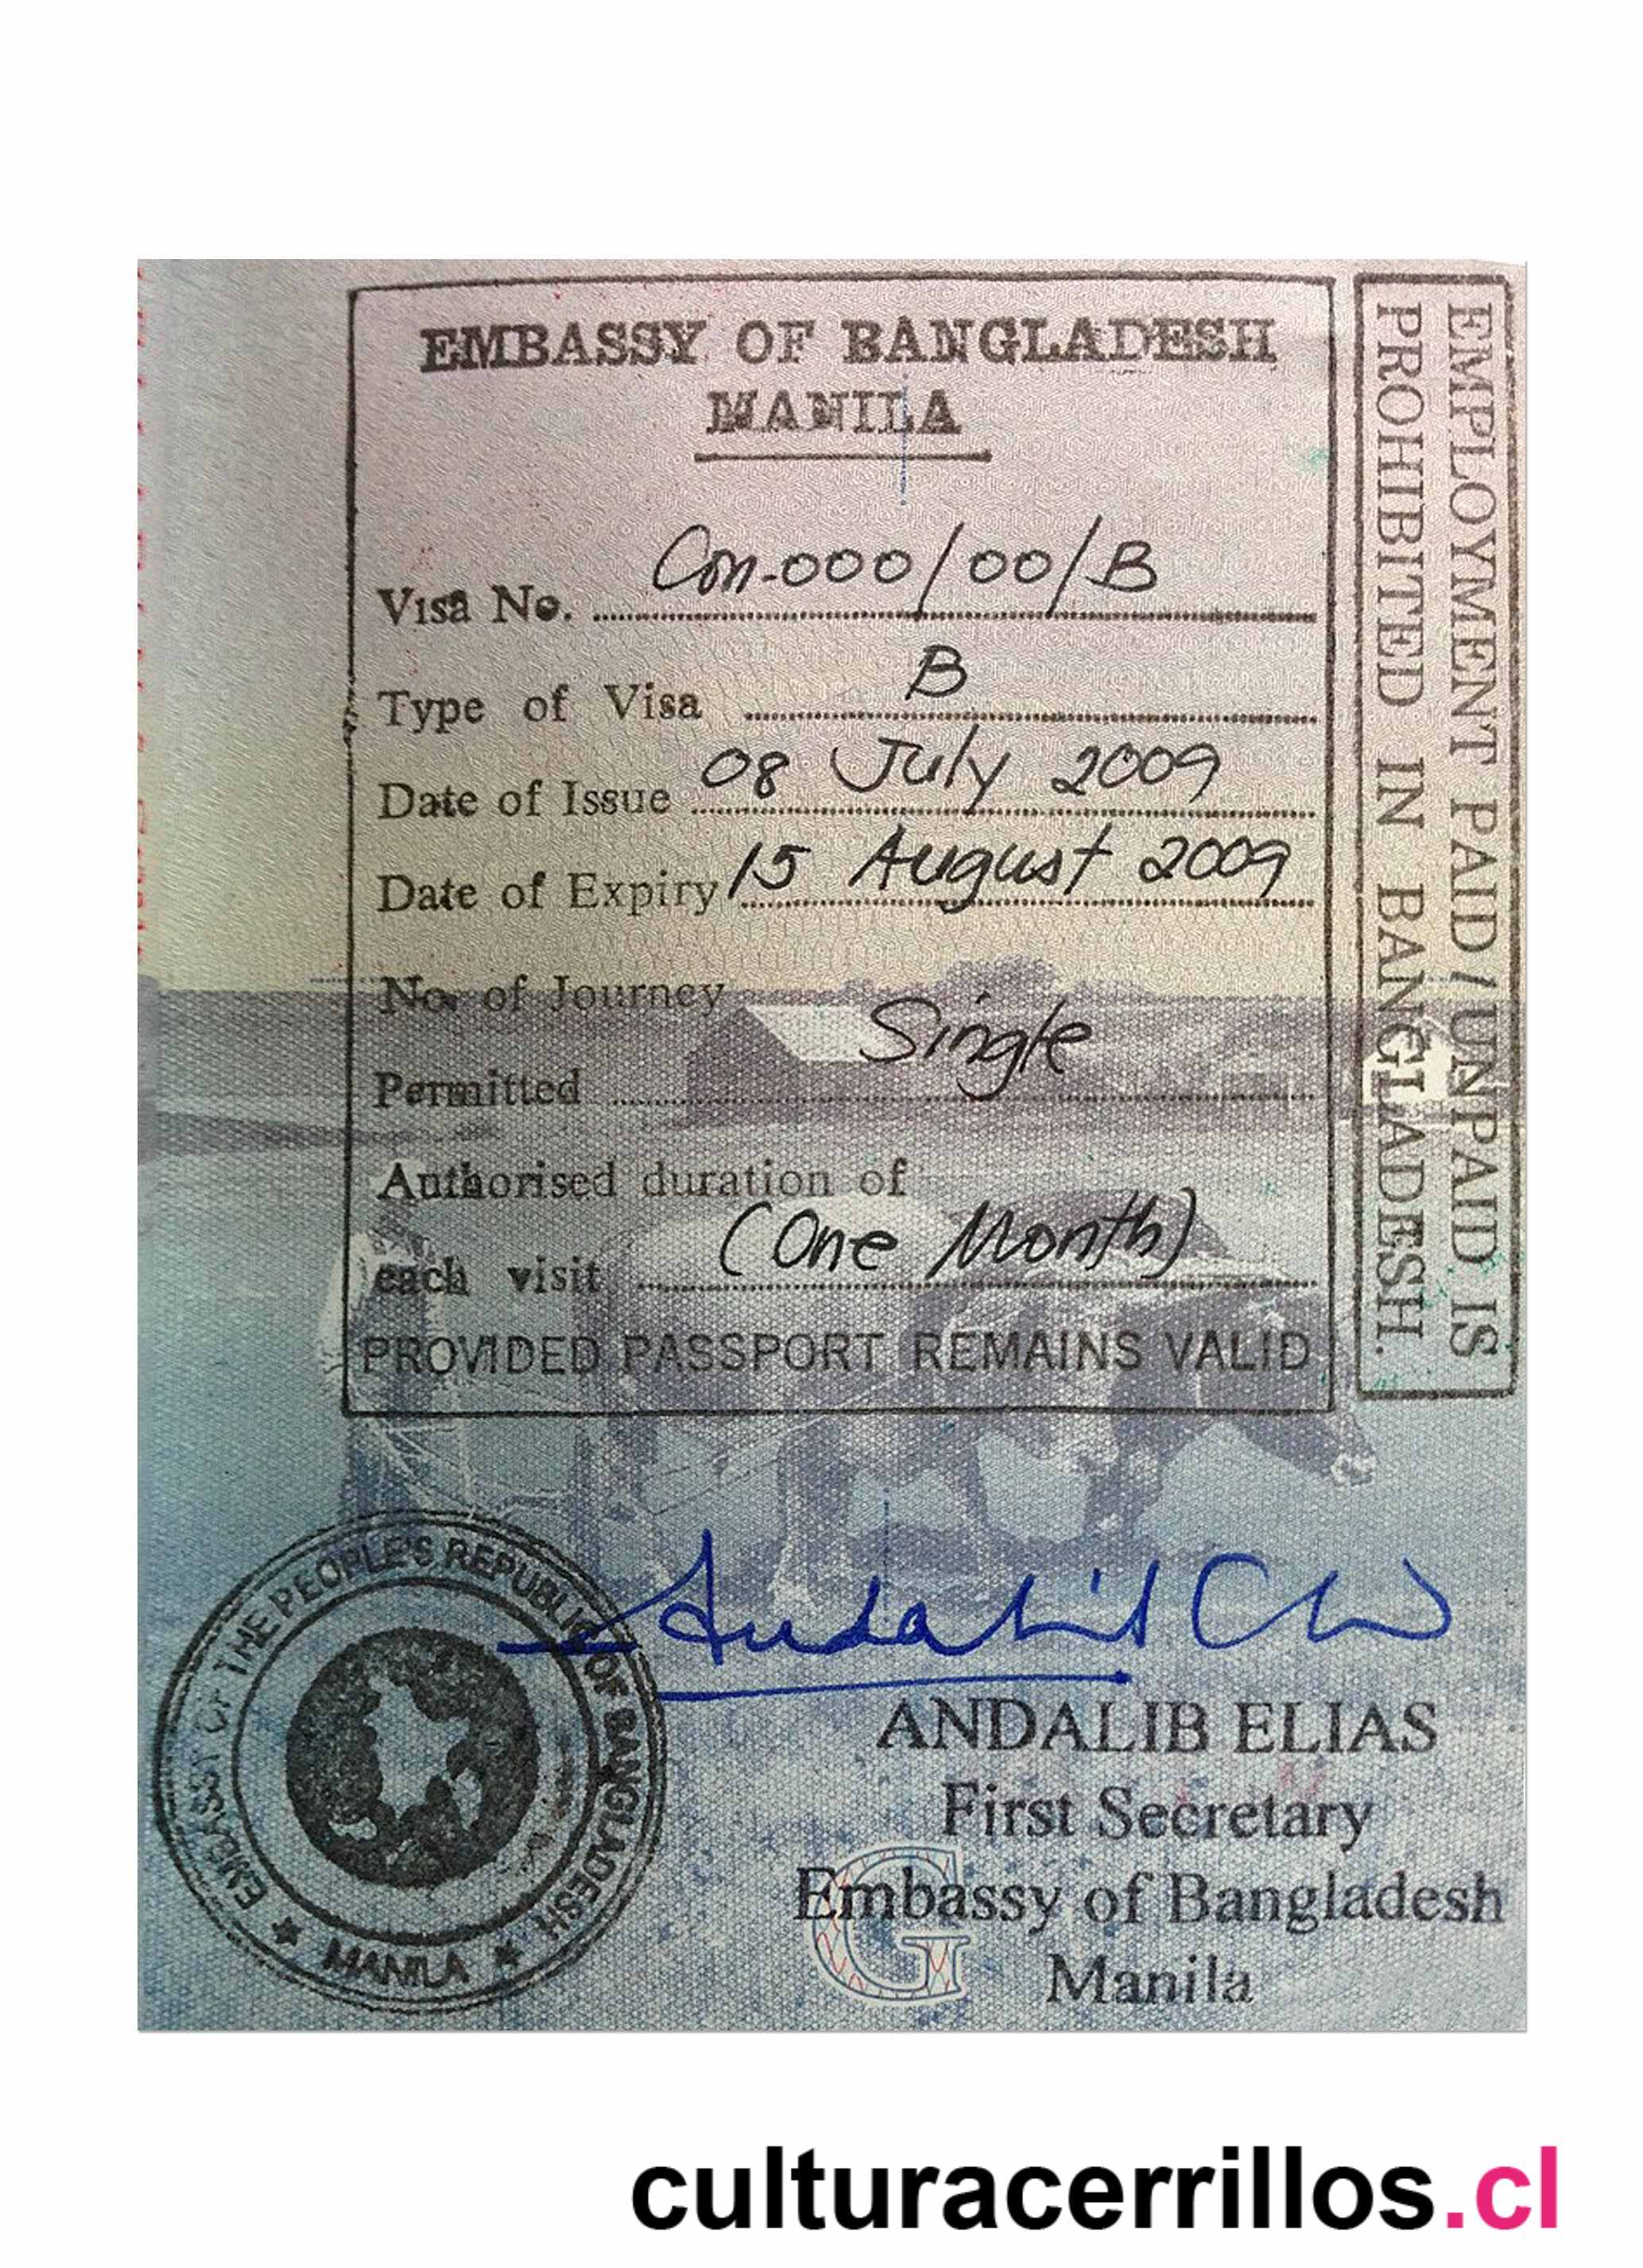 EMBASSY OF BANGLADESH
MANILA
Visa No. Con-000/00/B
Type of Visa B
Date of Issue 08 July 2009
Date of Expiry 15 August 2009
No. of Journey
Permitted Single
Authorised duration of
each visit (One Month)
PROVIDED PASSPORT REMAINS VALID
EMPLOYMENT PAID / UNPAID IS
PROHIBITED IN BANGLADESH.
EMBASSY OF THE PEOPLE'S REPUBLIC OF BANGLADESH
★ MANILA ★
Andalib
ANDALIB ELIAS
First Secretary
Embassy of Bangladesh
Manila
G
culturacerrillos.cl